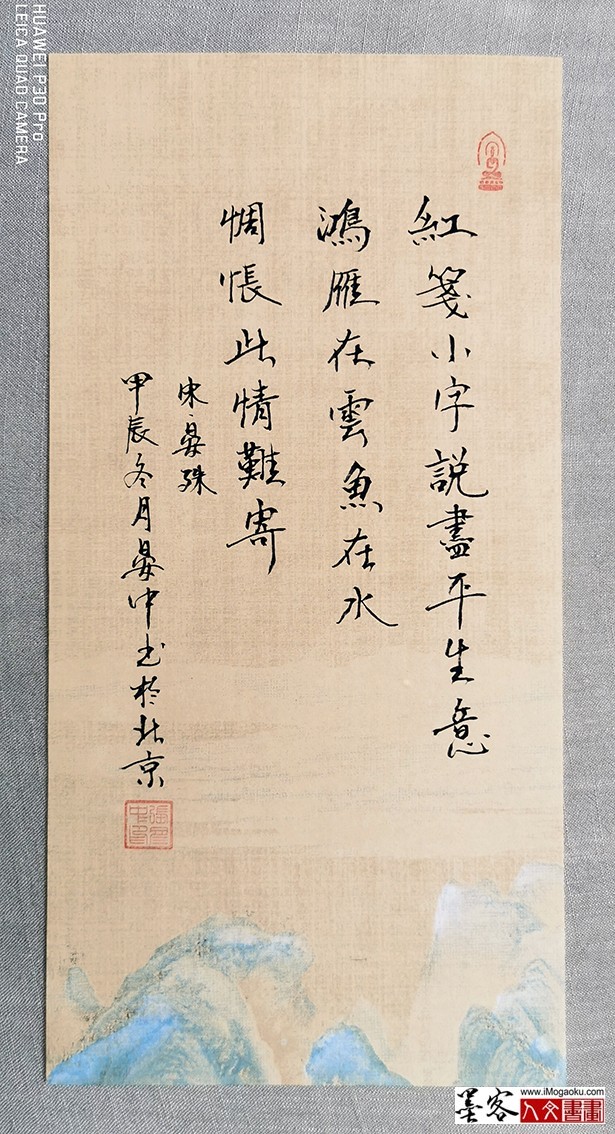 紅箋小字說盡平生意
鴻雁在雲魚在水
惆悵此情難寄
宋·晏殊
甲辰冬月晏中书於北京
HUAWEI P30 Pro
LEICA QUAD CAMERA
墨客
www.iMogaoku.com
人文書畫